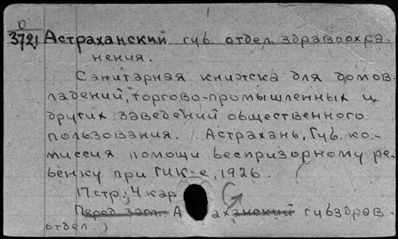 О
3721 Астраханский губ. отдел здравоохра-
нения.
Санитарная книжка для домов-
ладений, торгово-промышленных и
других заведений общественного
пользования. Астрахань, Губ. ко-
миссия помощи беспризорному ре-
бенку при ГИК-е, 1926.
17 стр; 4 кар
Перед загл. А аханский губздрав-
отдел.)